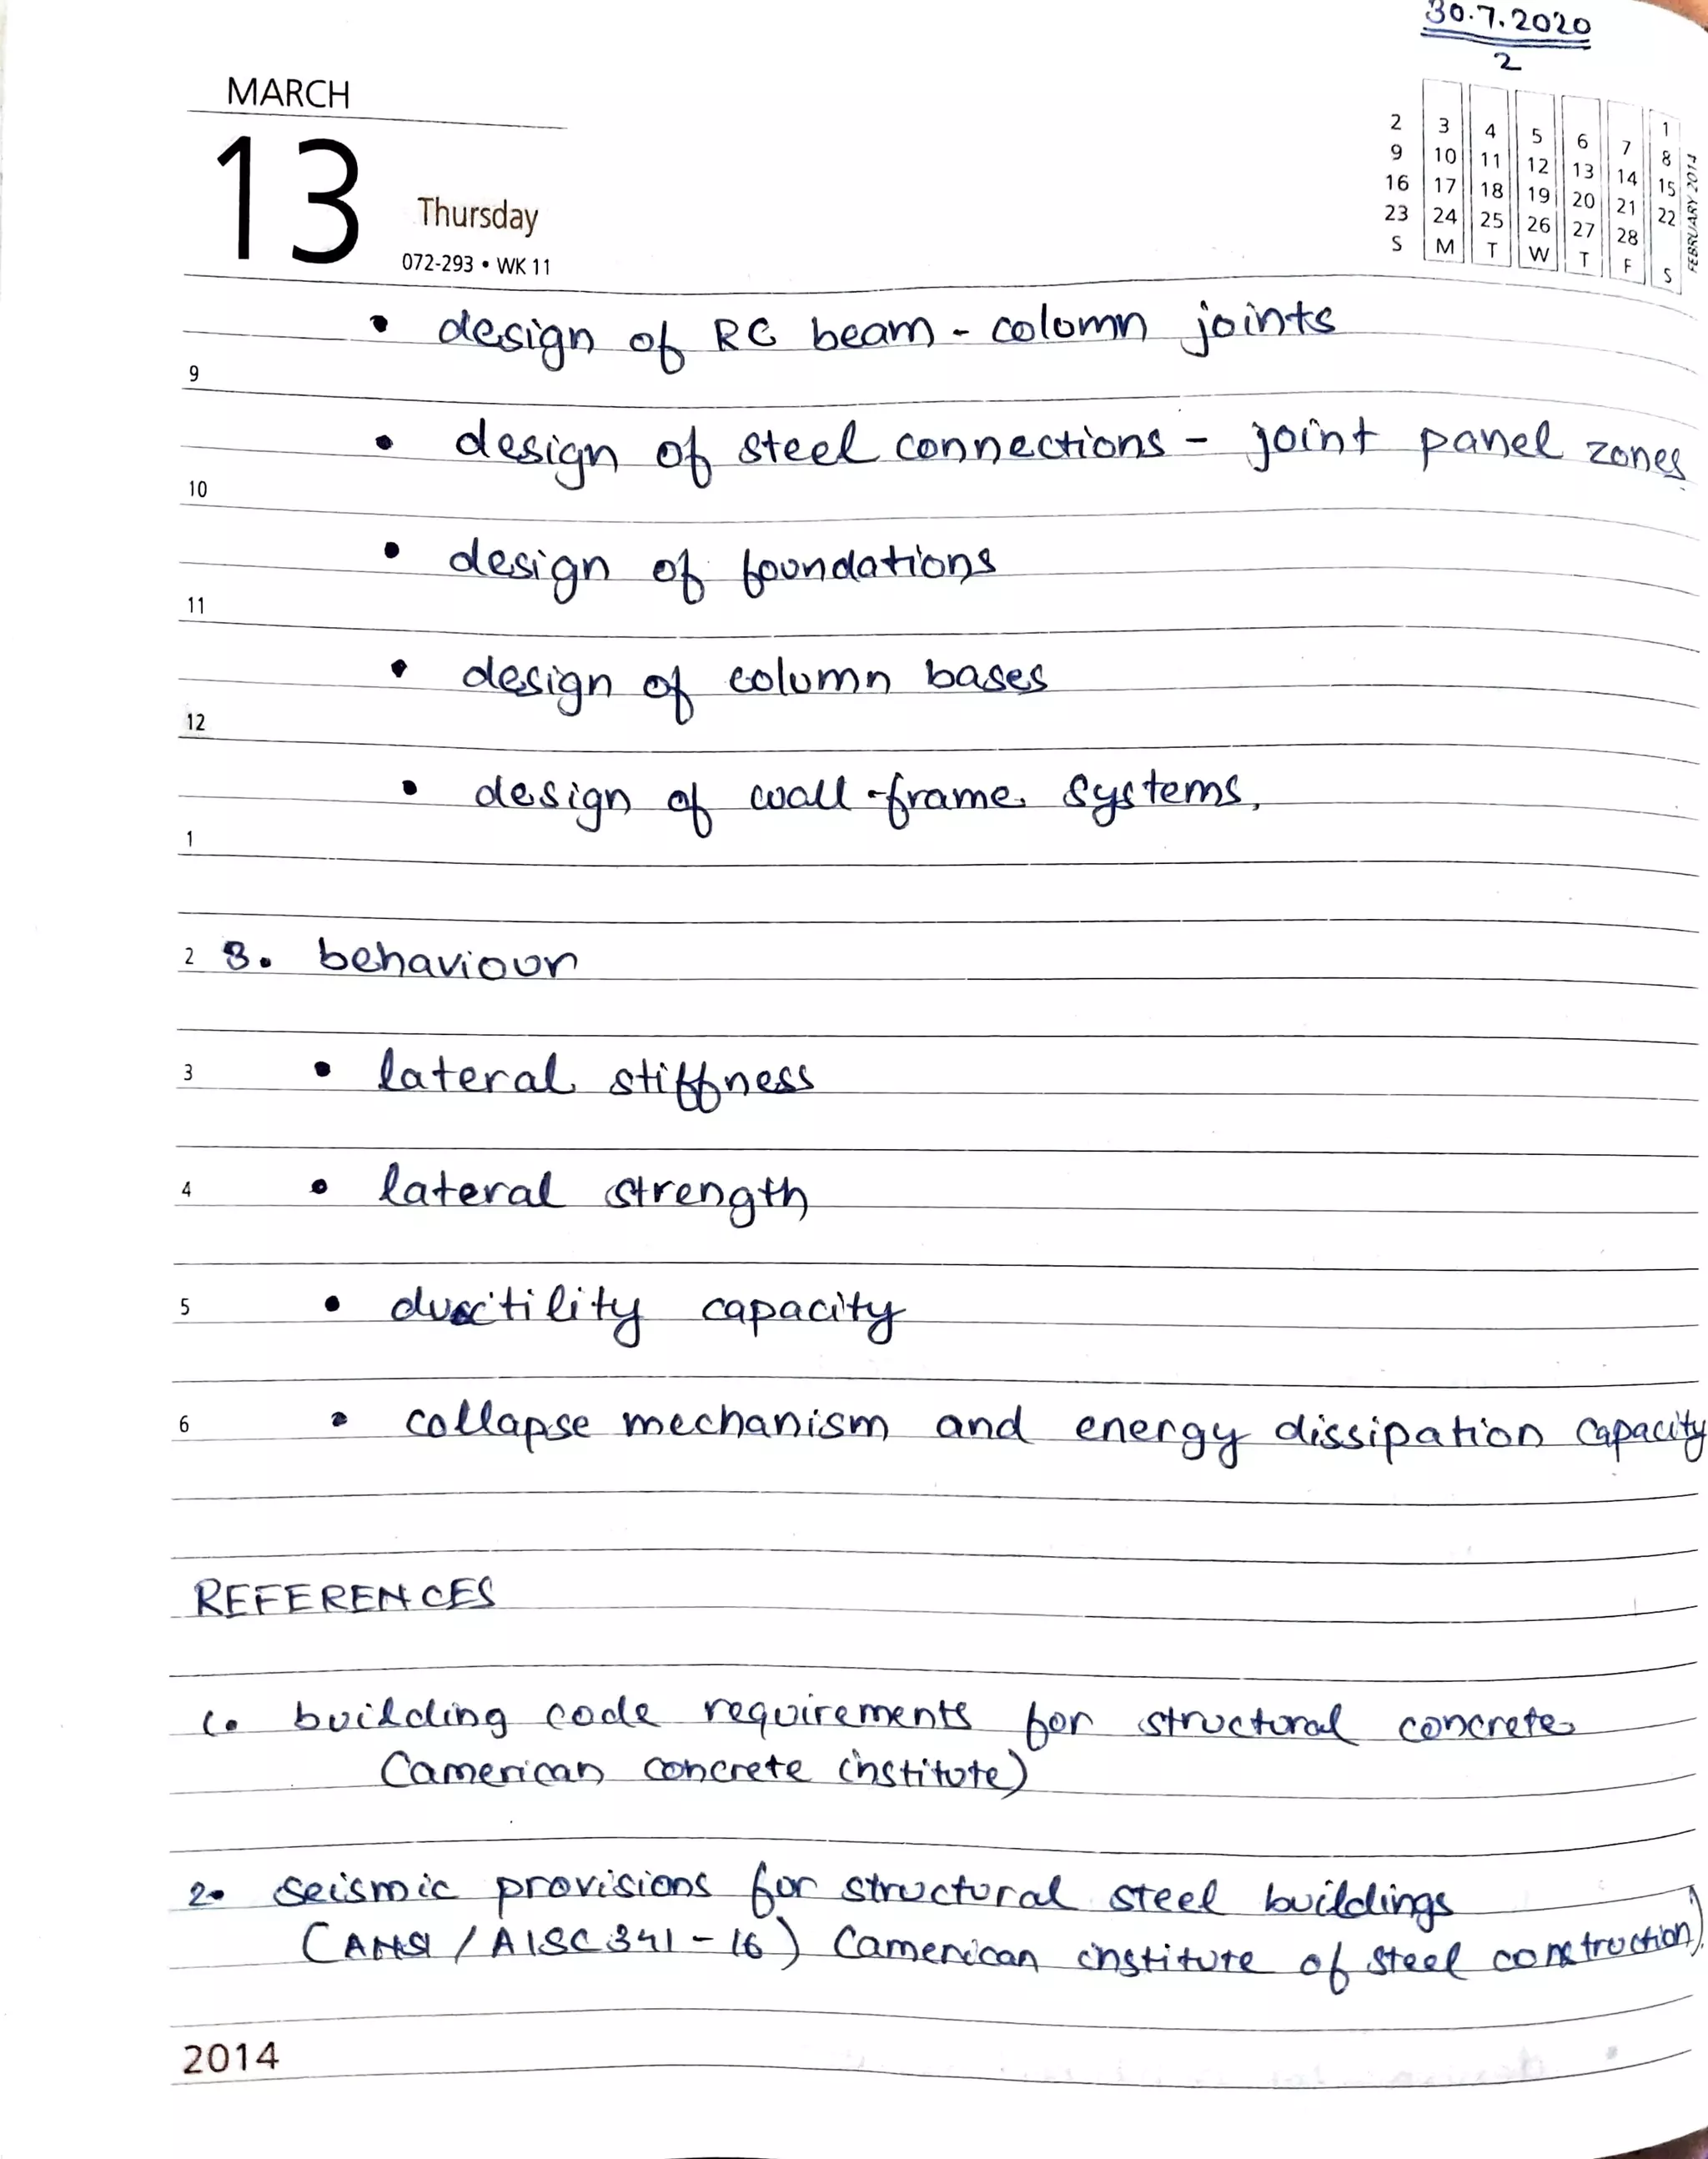 30.7.2020
2
MARCH
13 Thursday
072-293 • WK 11
1
2 3 4 5 6 7 8
9 10 11 12 13 14 15
16 17 18 19 20 21 22
23 24 25 26 27 28
S M T W T F S
FEBRUARY 2014
• design of RC beam - colomn joints
9
• design of steel connections - joint panel zones
10
• design of foundations
11
• design of column bases
12
• design of wall-frame systems.
1
2 3. behaviour
3 • lateral stiffness
4 • lateral strength
5 • ductility capacity
6 • collapse mechanism and energy dissipation capacity
REFERENCES
1. building code requirements for structural concrete
(american concrete institute)
2. seismic provisions for structural steel buildings
(ANSI / AISC 341-16) (american institute of steel construction).
2014